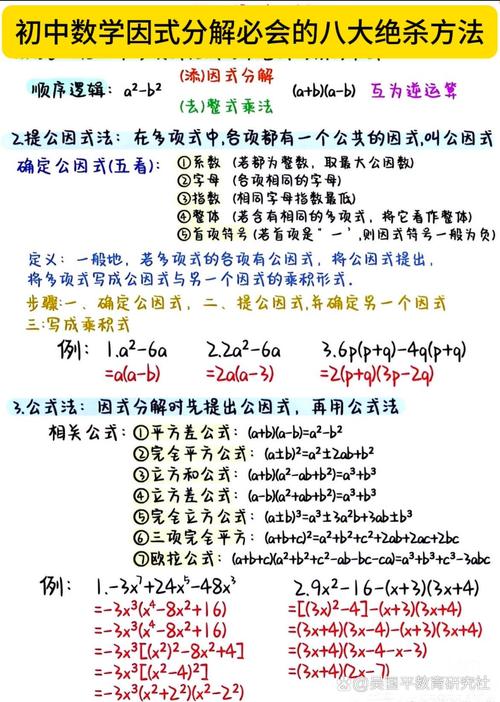 初中数学因式分解必会的八大绝杀方法
(添)因式分解
顺序逻辑: a²-b² (a+b)(a-b) 互为逆运算
(去)整式乘法
2.提公因式法: 在多项式中,各项都有一个公共的因式,叫公因式
确定公因式(五看): ①系数 (若都为整数, 取最大公因数)
②字母 (各项相同的字母)
③指数 (相同字母指数最低)
④整体 (若含有相同的多项式, 将它看作整体)
⑤首项符号(若首项是“-”,则因式符号一般为负)
定义: 一般地, 若多项式的各项有公因式, 将公因式提出,
将多项式写成公因式与另一个因式的乘积形式.
步骤:一、确定公因式, 二、提公因式,并确定另一个因式
三:写成乘积式
例: 1.a²-6a 2.2a²-6a 3.6p(p+q)-4q(p+q)
=a(a-b) =2a(a-3) =2(p+q)(3p-2q)
3.公式法: 因式分解时先提出公因式, 再用公式法
相关公式: ①平方差公式: (a+b)(a-b)=a²-b²
②完全平方公式: (a±b)²=a²±2ab+b²
③立方和公式: (a+b)(a²-ab+b²)=a³+b³
④立方差公式: (a-b)(a²+ab+b²)=a³+b³
⑤完全立方公式: (a±b)³=a³±3a²b+3ab±b³
⑥三项完全平方: (a+b+c)²=a²+b²+c²+2ab+2ac+2bc
⑦欧拉公式: (a+b+c)(a²+b²+c²-ab-bc-ca)=a³+b³+c³-3abc
例: 1.-3x⁷+24x⁵-48x³ 2.9x²-16-(x+3)(3x+4)
=-3x³(x⁴-8x²+16) =[(3x)²-4]-(x+3)(3x+4)
=-3x³(x⁴-8x²+16) =(3x+4)(3x-4)-(x+3)(3x+4)
=-3x³[(x²)²-8x²+4] =(3x+4)(3x-4-x-3)
=-3x³[(x²-4)²] =(3x+4)(2x-7)
=-3x³(x²+2²)(x²-2²)